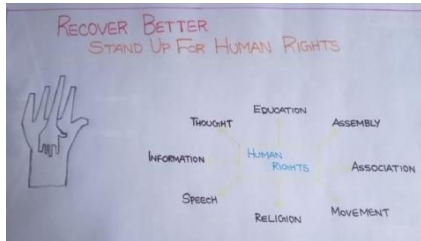 Recover Better
Stand Up For Human Rights
Education
Thought
Assembly
Information
Human
Rights
Association
Speech
Religion
Movement